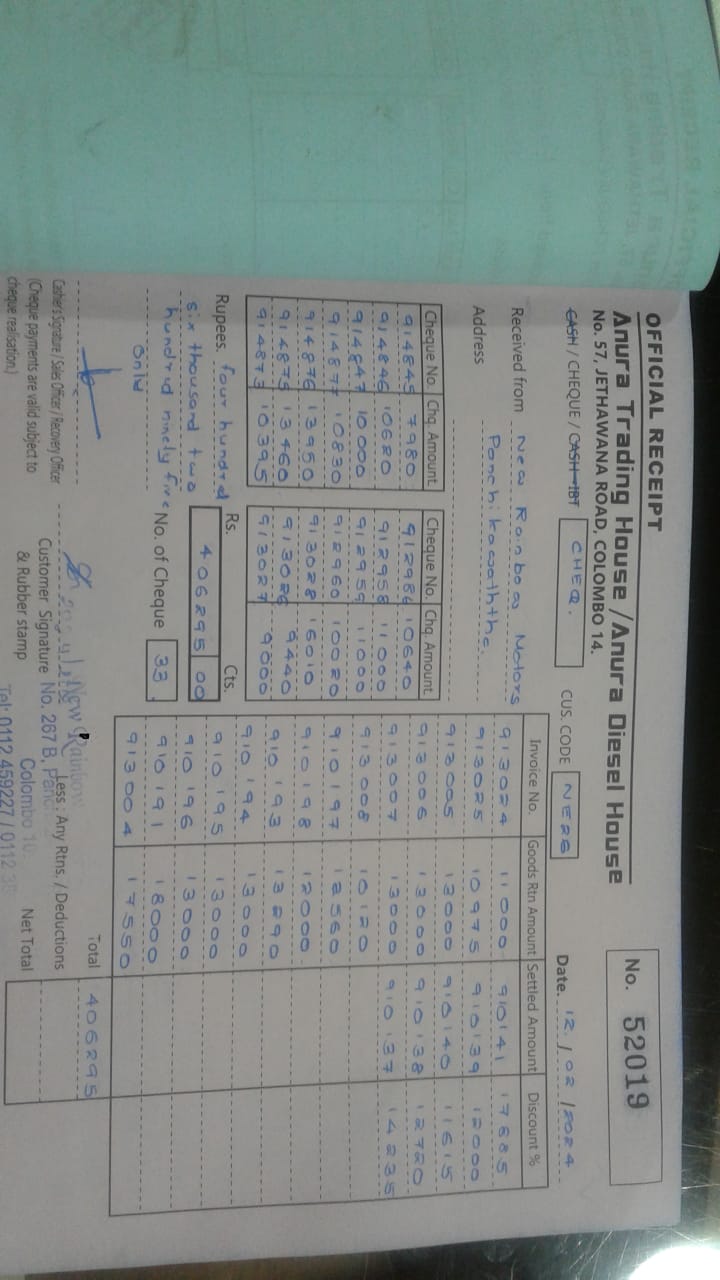 OFFICIAL RECEIPT
Anura Trading House / Anura Diesel House
No. 57, JETHAWANA ROAD, COLOMBO 14.
No. 52019
CASH / CHEQUE / CASH-IBT CHEQ. CUS. CODE NERG Date. 12/02/2024
Received from New Rainbow Motors
Panchikawaththe.
Address
Cheque No. Chq. Amount Cheque No. Chq. Amount
914845 7980 912986 10640
914846 10620 912958 11000
914847 10000 912959 11000
914877 10830 912960 10020
914876 13950 913028 16010
914875 13460 913026 9440
914873 10395 913027 9000
Invoice No. Goods Rtn Amount Settled Amount Discount %
913024 11000 910141 17685
913025 10975 910139 12000
913005 13000 910140 11615
913006 13000 910138 12720
913007 13000 910137 14235
913008 10120
910197 12560
910198 12000
910193 13290
910194 13000
910195 13000
910196 13000
910191 18000
913004 17550
Rupees. four hundred
six thousand two
hundred ninety five
only
Rs. Cts.
406295 00
No. of Cheque 33
Total 406295
Less : Any Rtns. / Deductions
Net Total
Cashier's Signature / Sales Officer / Recovery Officer
(Cheque payments are valid subject to
cheque realisation.)
Customer Signature
& Rubber stamp
New Rainbow
No. 267 B,
Colombo 10
Tel: 0112 459227 / 0112